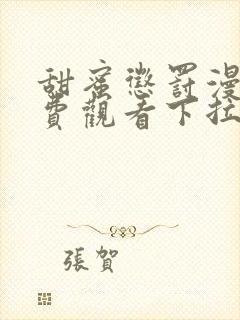 甜蜜懲罰漫
費觀看下拉
張賀